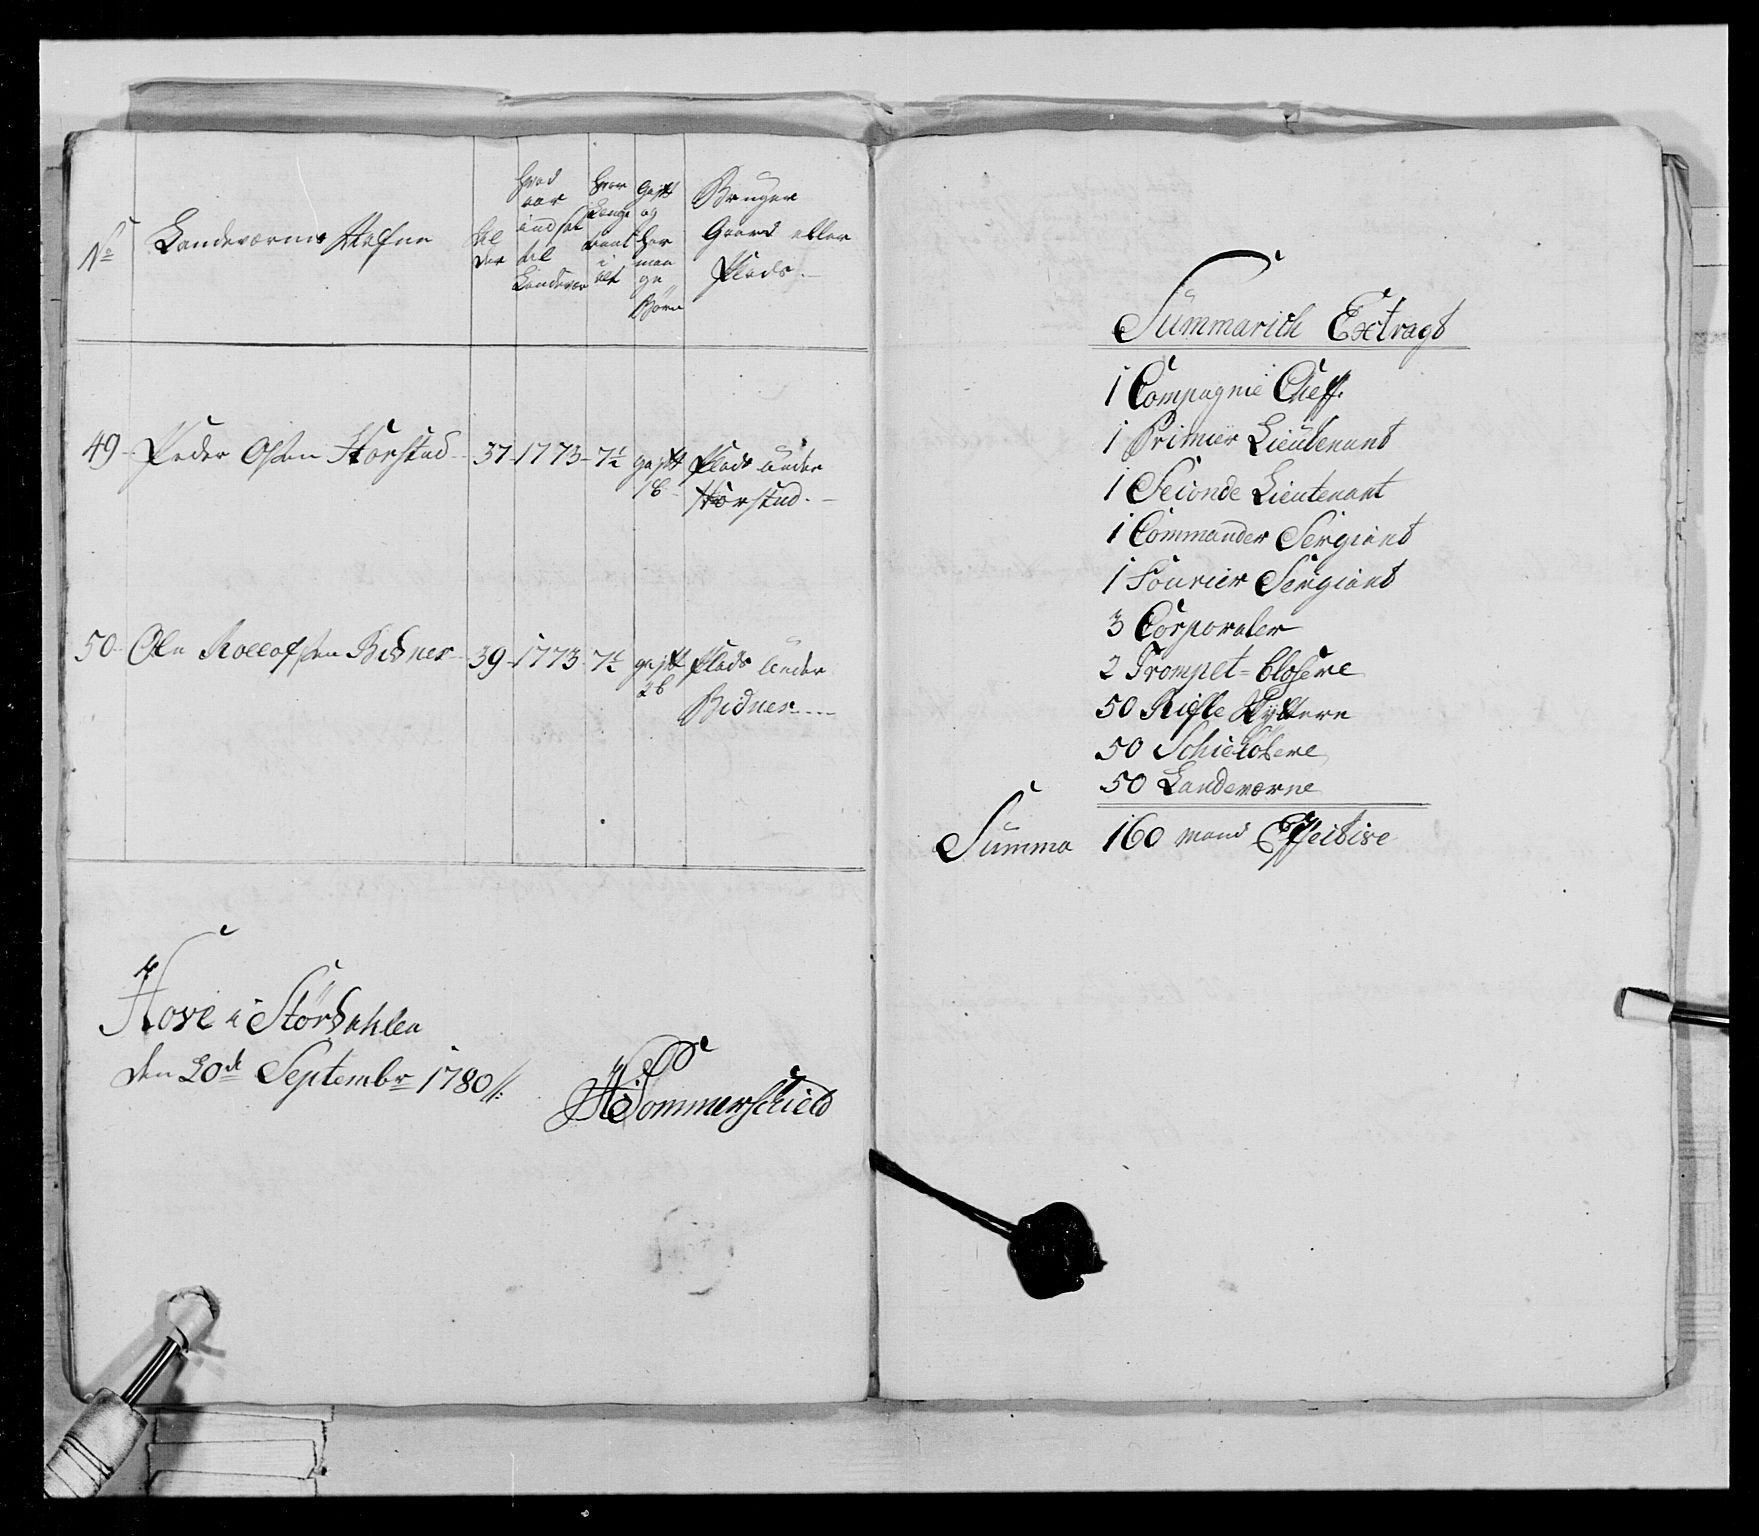 No
Landeværns Nafne
Al
der
hvad
aar
ind sat
til
Landevær
hvor
Længe
tient
i
alt
Gift
og
hvor
man
ge
Børn
Bruger
Gaard eller
Plads.
49 Peder Olsen Storstad 37 1773 7½ gift Plads under
1 B Storstad.
50 Ole Roelofsen Bidner 39 1773 7½ gift Plads under
2 B
Bidner
Hove i Størdahlen
den 20de Septembr 1780
Sommerschield
Summarish Extragt
1 Compagnie Cheff.
1 Primier Lieutenant
1 Seconde Lieutenant
1 Commander Sergiant
1 Fourier Sergiant
3 Corporaler
2 Trompet-blosere
50 Rifle Rÿttere
50 Schieløbere
50 Landeværne
Summa 160 mand Effective